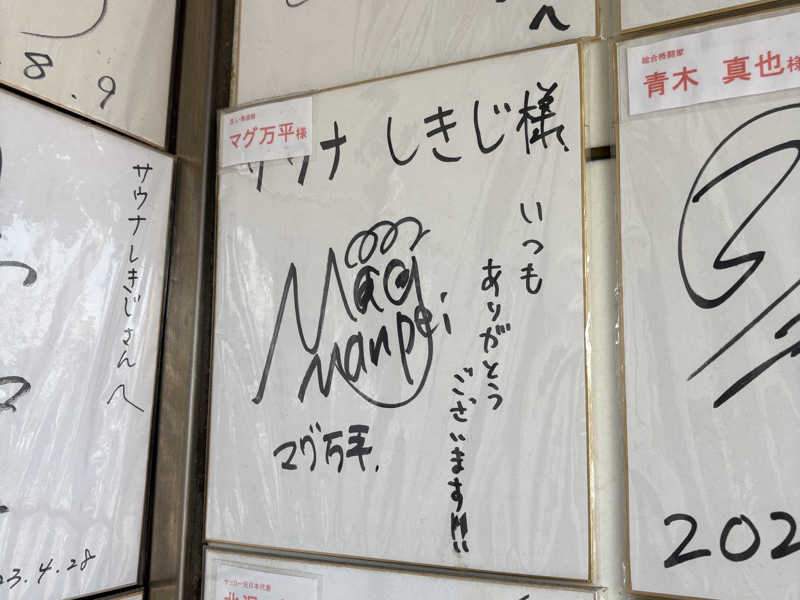 8.9
サウナしきじさんへ
23.4.28
マグ万平様
サウナ しきじ様
いつも
ありがとう
ございます!!!
Mag
Manpei
マグ万平.
総合格闘家
青木 真也様
202
サッカー元日本代表